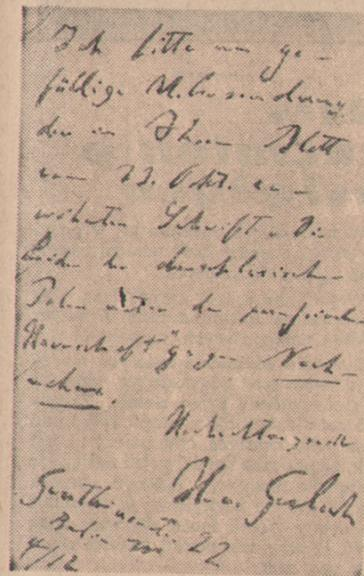 Ich bitte um ge-
fällige Uebersendung
der in Ihrem Blatt
vom 23. Okt. er-
wähnten Schrift „Die
Leiden der oberschlesischen
Polen unter der preussischen
Herrschaft" gegen Nach-
nahme.
Hochachtungsvoll
H. v. Gerlach
22
Berlin
4/12